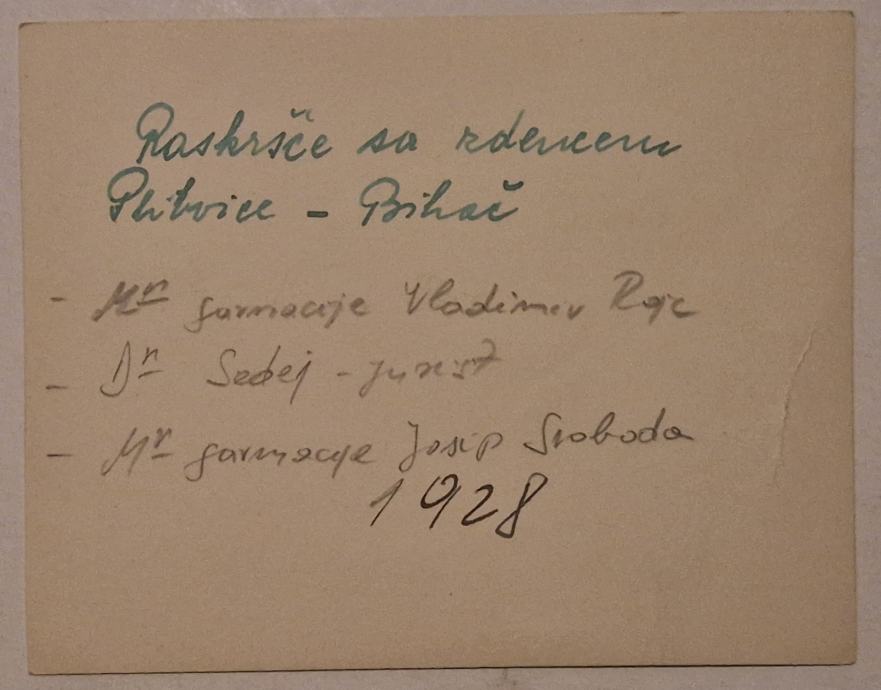 Raskršće sa zdencem
Plitvice - Bihać
- Mr farmacije Vladimir Rojc
- Dr Sedej - jurist
- Mr farmacije Josip Svoboda
1928